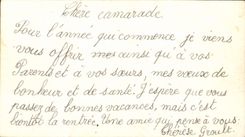 Chère camarade
Pour l'année qui commence je viens
vous offrir mes ainsi qu'à vos
Parents et à vos sœurs, mes vœux de
bonheur et de santé. J'espère que vous
passez de bonnes vacances, mais c'est
bientôt la rentrée. Une amie qui pense à vous
Thérèse